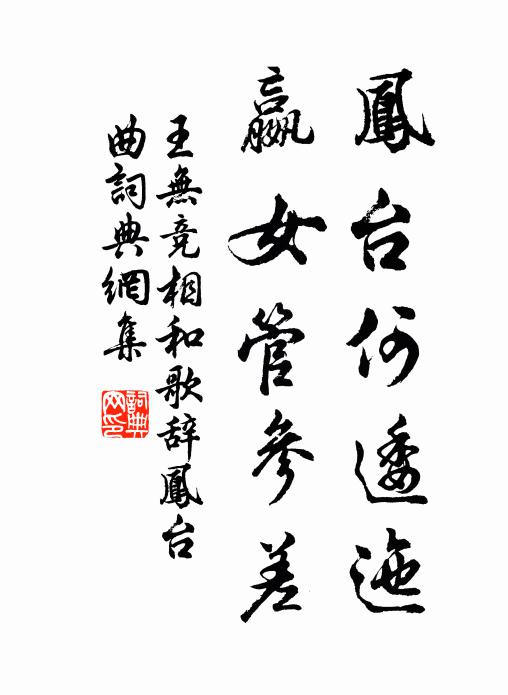 鳳台何逶迤
嬴女管參差
王無競相和歌辞鳳台
曲詞典網集
詞典网印